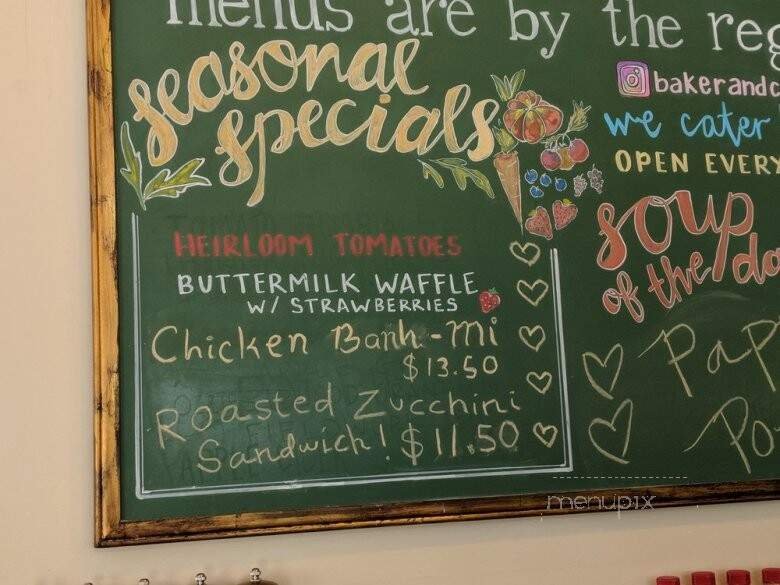 menus are by the reg
seasonal
specials
HEIRLOOM TOMATOES
BUTTERMILK WAFFLE
W/ STRAWBERRIES
Chicken Banh-Mi
$13.50
Roasted Zucchini
Sandwich! $11.50
bakerandc
we cater
OPEN EVERY
soup
of the da
Pap
Po
menupix